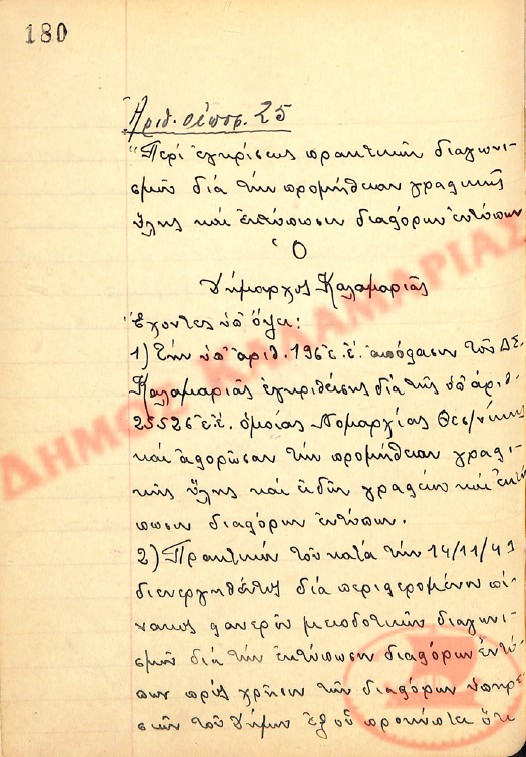 180
Ἀριθ. ἀποφ. 25
"Περί ἐγκρίσεως πρακτικῶν διαγωνι-
σμοῦ διά τήν προμήθειαν γραφικῆς
ὕλης καί ἐκτύπωσιν διαφόρων ἐντύπων
Ὁ
Δήμαρχος Καλαμαριᾶς
Ἔχοντες ὑπ' ὄψει:
1) Τήν ὑπ' ἀριθ. 196 ἐ.ἔ. ἀπόφασιν τοῦ Δ.Σ.
Καλαμαριᾶς ἐγκριθείσης διά τῆς ὑπ' ἀριθ.
25525 ἐ.ἔ. ὁμοίας Νομαρχίας Θεσ/νίκης
καί ἀφορῶσαν τήν προμήθειαν γραφι-
κῆς ὕλης καί εἰδῶν γραφείου καί ἐκτύ
πωσιν διαφόρων ἐντύπων.
2) Πρακτικόν τοῦ κατά τήν 14/11/49
διενεργηθέντος διά περιφερομένου πί-
νακος φανεροῦ μειοδοτικοῦ διαγωνι-
σμοῦ διά τήν ἐκτύπωσιν διαφόρων ἐντύ-
πων πρός χρῆσιν τῶν διαφόρων ὑπηρε
σιῶν τοῦ Δήμου ἐξ οὗ προκύπτει ὅτι
ΔΗΜΟΣ ΚΑΛΑΜΑΡΙΑΣ